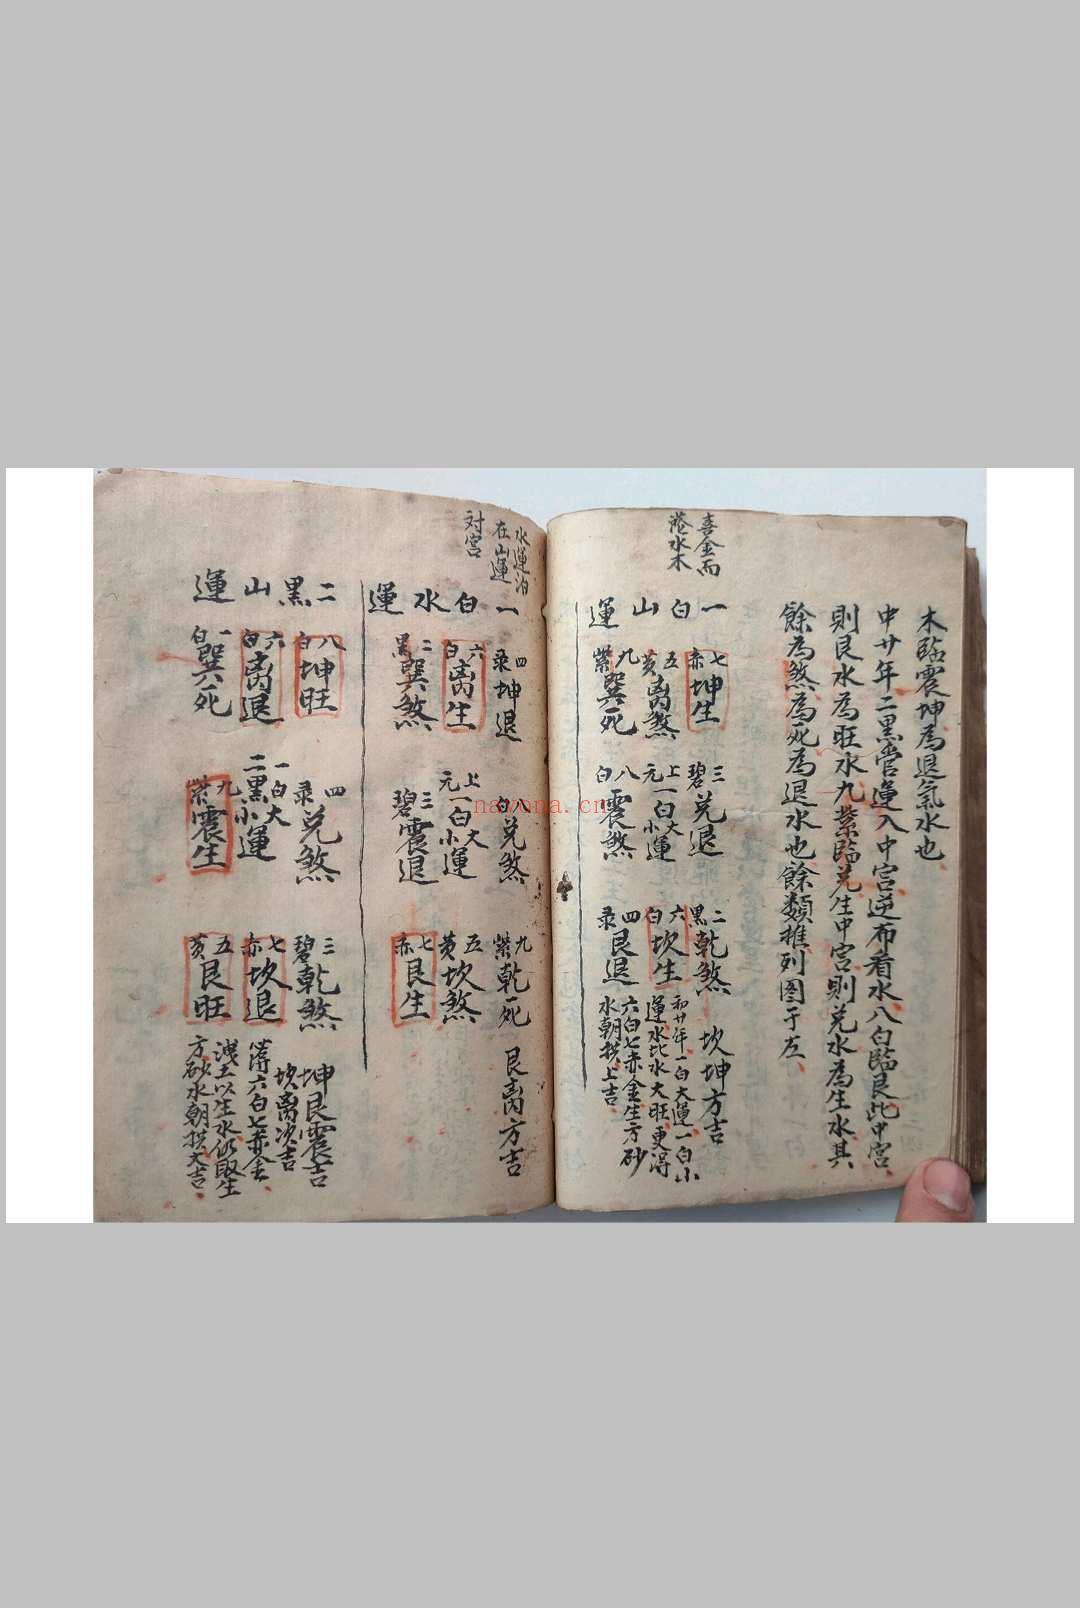 木臨震坤為退氣水也
中廿年二黑當運入中宮逆布看水八白臨艮比中宮
則艮水為旺水九紫臨兑生中宮則兑水為生水其
餘為煞為死為退水也餘類推列图于左
喜金而
水木
一白山運
七赤坤生
五黃离煞
九紫巽死
三碧兑退
上元一白大小運
八白震煞
二黑乾煞
六白坎生
四录艮退
坎坤方吉
和廿年一白大運一白小
運水比水大旺更得
六白七赤金生方砂
水朝拱上吉
水運泊
在山運
対宮
一白水運
四录坤退
六白离生
二黑巽煞
白兑煞
上元一白大小運
三碧震退
九紫乾死
五黃坎煞
七赤艮生
艮离方吉
二黑山運
八白坤旺
六白离退
一白巽死
四录兑煞
一白大
二黑小運
九紫震生
三碧乾煞
七赤坎退
五黃艮旺
坤艮震吉
坎离次吉
得六白七赤金
洩土以生水仍取生
方砂水朝拱大吉
navona.cn